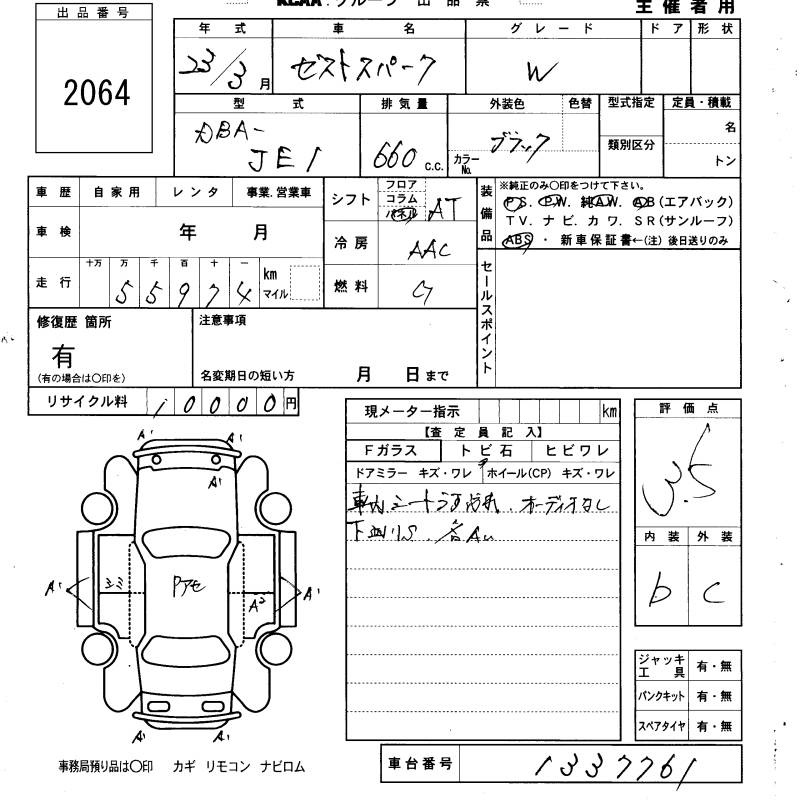 KCAA.グループ 出品票
主催者用
出品番号
2064
年式 車名 グレード ドア 形状
23/3月 ゼストスパーク W
型式 排気量 外装色 色替 型式指定 定員・積載
DBA-
JE1 660 c.c. カラーNo. ブラック 類別区分 名
トン
車歴 自家用 レンタ 事業.営業車
シフト フロア コラム パネル AT
装備品 ※純正のみ〇印をつけて下さい。
P.S. P.W. 純A.W. A.B(エアバック)
TV. ナビ. カワ. SR(サンルーフ)
ABS ・ 新車保証書←(注) 後日送りのみ
車検 年 月
冷房 AAC
走行 十万 万 千 百 十 一
55974 km マイル
燃料 ガ
セールスポイント
修復歴 箇所
有
(有の場合は〇印を)
注意事項
名変期日の短い方 月 日まで
リサイクル料 10000円
現メーター指示 km
【査定員記入】
Fガラス トビ石 ヒビワレ
ドアミラー キズ・ワレ ホイール(CP) キズ・ワレ
車内シートうす汚れ、オーディオなし
下廻りS.各A
評価点
3.5
内装 外装
b c
A' A'
A'
A' シミ Pアセ A² A'
A' A'
ジャッキ工具 有・無
パンクキット 有・無
スペアタイヤ 有・無
事務局預り品は〇印 カギ リモコン ナビロム
車台番号 1337761